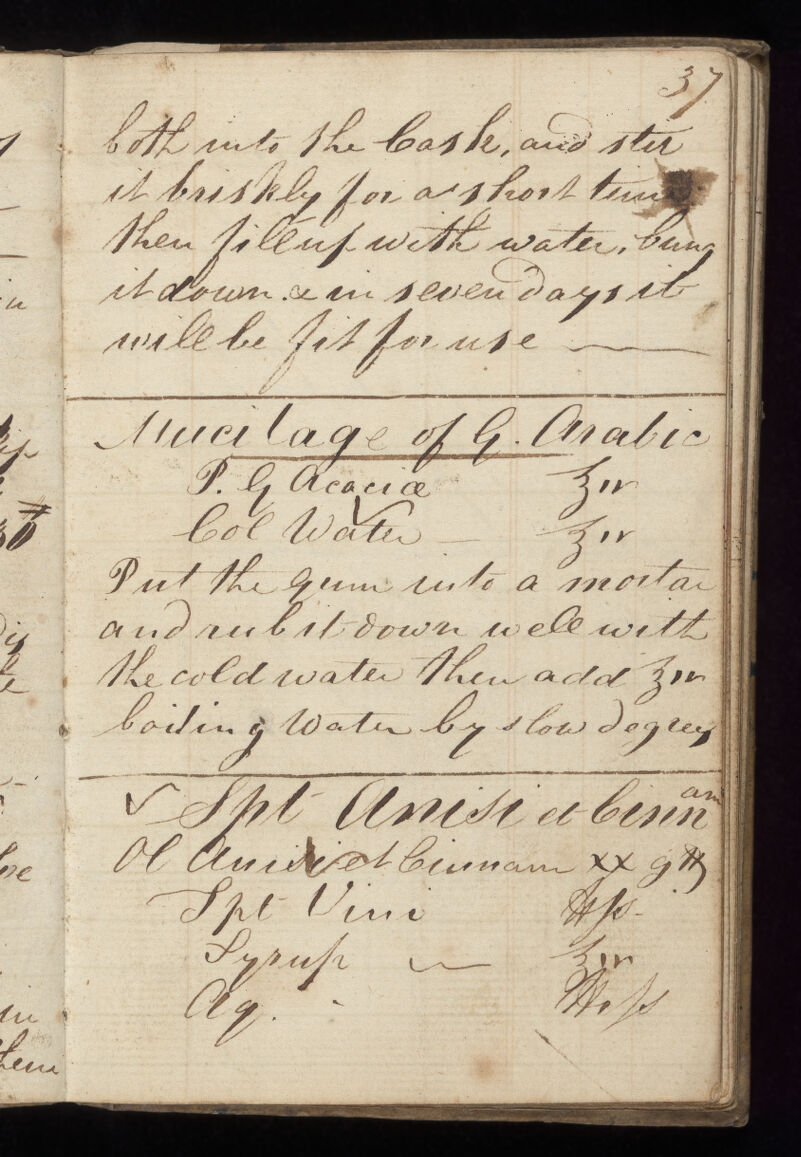 37
both into the Cask, and stir
it briskly for a short time
then fill up with water, bung
it down & in seven days it
will be fit for use
Mucilage of G. Arabic
P. G Acaciæ ℥iv
Col Water ℥iv
Put the gum into a mortar
and rub it down well with
the cold water then add ℥iv
boiling Water by slow degrees
✓ Spt Anisi et Cinnam
Ol Anisi et Cinnam xx gtt
Spt Vini ℔ss
Syrup ℥iv
Aq.